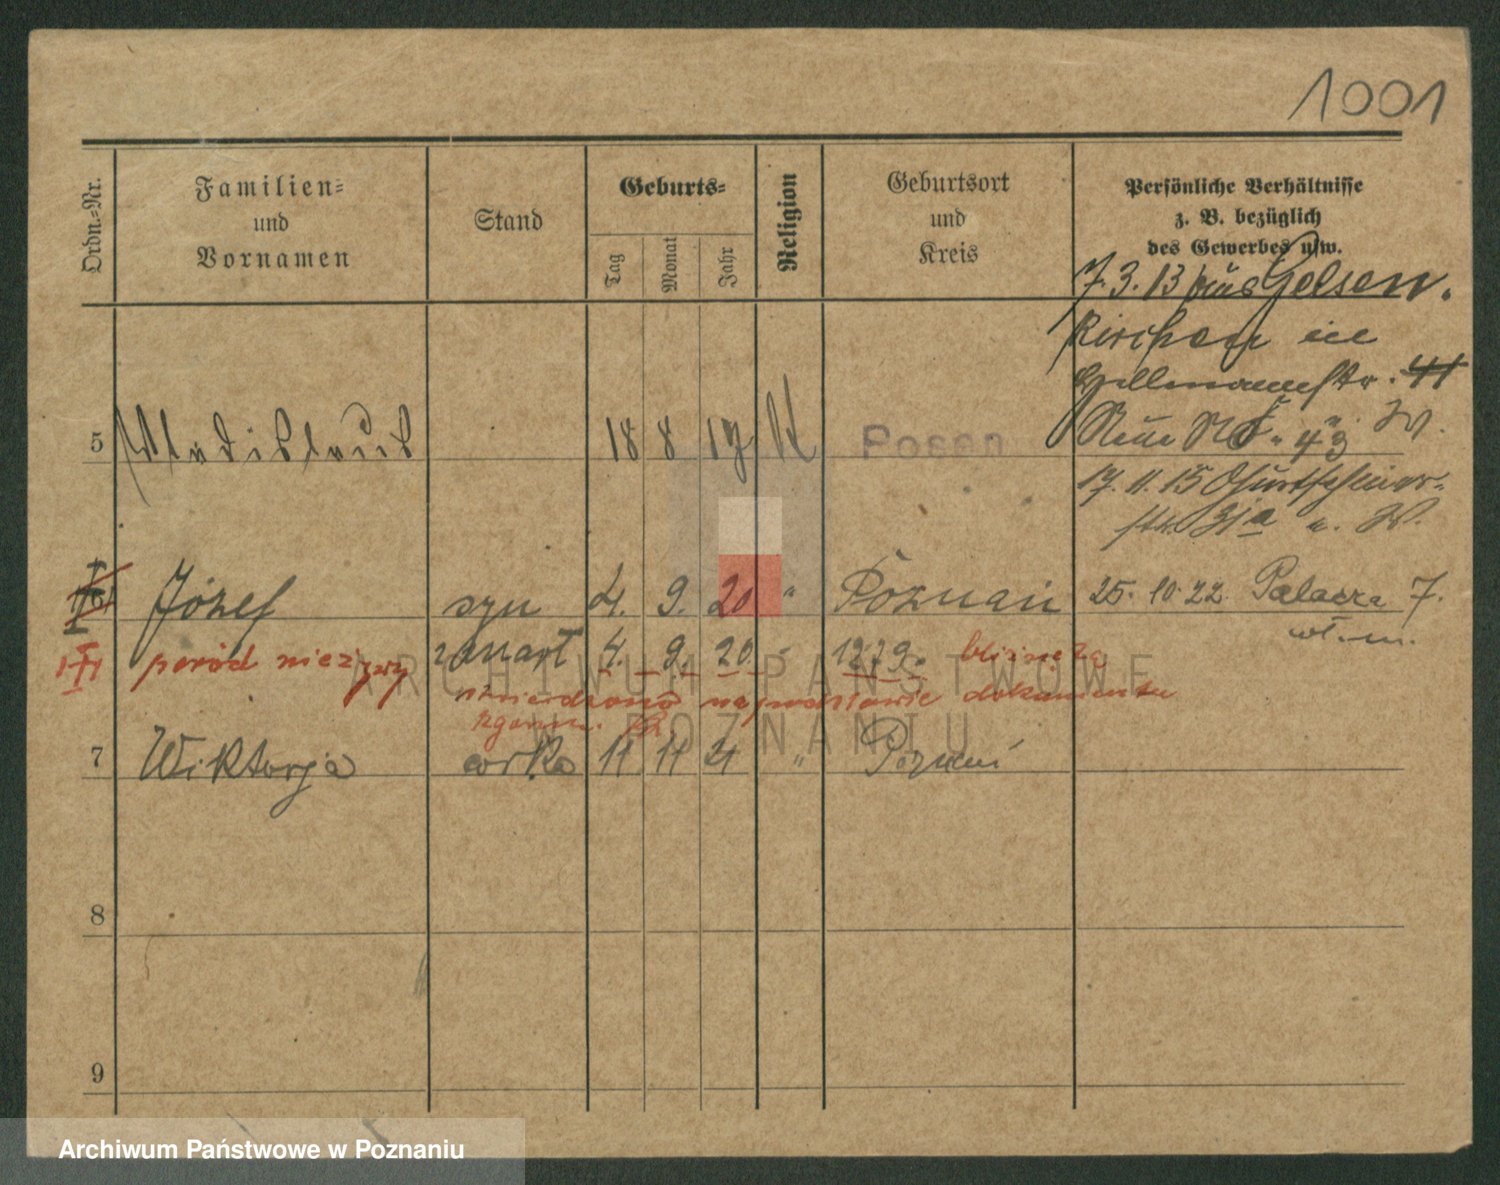 1001
Ordn.-Nr.
Familien-
und
Vornamen
Stand
Geburts-
Tag
Monat
Jahr
Religion
Geburtsort
und
Kreis
Persönliche Verhältnisse
z. B. bezüglich
des Gewerbes usw.
7.3.13 aus Gelsen-
kirchen in
str. 41
Neue Nr. 43 W.
5 Wladislaus 18 8 17 K Posen
17.11.15
31a W.
6 Józef syn 4. 9. 20 " Poznań 25.10.22. Palacza 7.
poród nieżywy zmarł 4. 9. 20. 1929. bliźnięta
stwierdzono na podstawie dokumentu
zgonu.
7 Wiktorja córka 11 11 21 " Poznań
8
9
ARCHIWUM PAŃSTWOWE
W POZNANIU
Archiwum Państwowe w Poznaniu